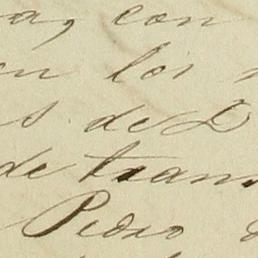 a, con
en los
s de D
de tran
Pedro